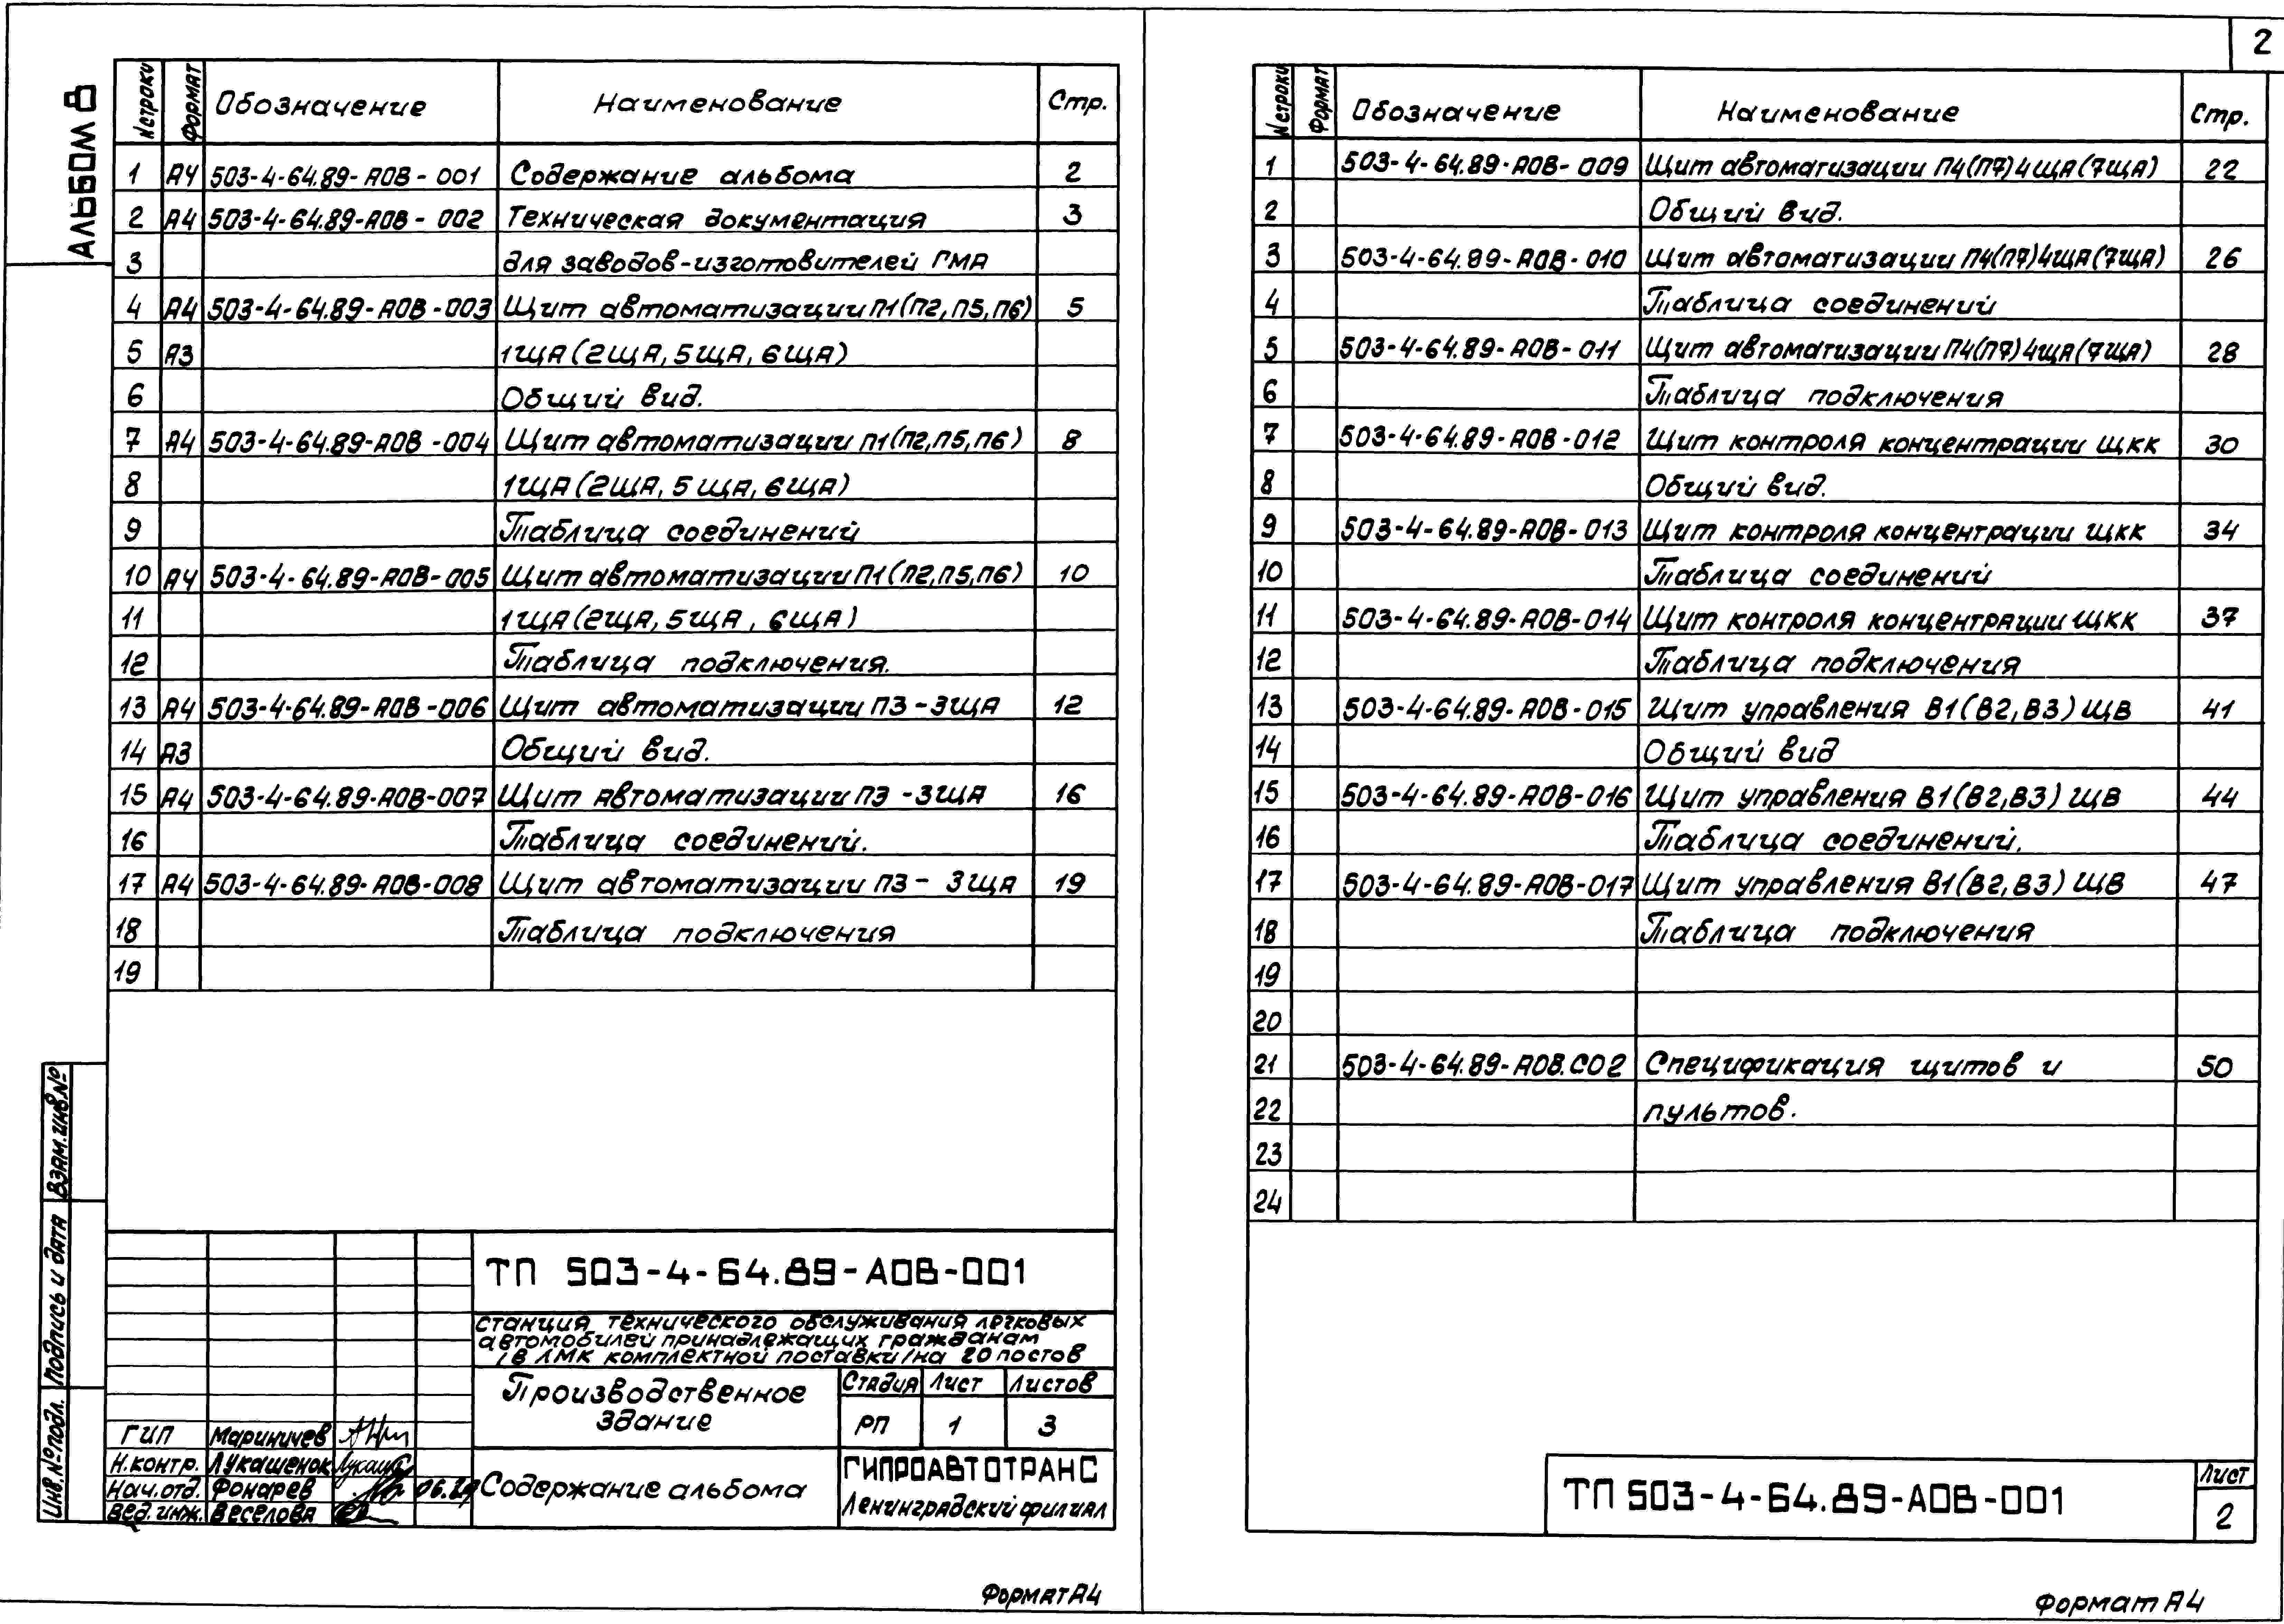 2
Альбом 8
N строки Формат Обозначение Наименование Стр.
1 А4 503-4-64.89-АОВ-001 Содержание альбома 2
2 А4 503-4-64.89-АОВ-002 Техническая документация 3
3 для заводов-изготовителей ГМА
4 А4 503-4-64.89-АОВ-003 Щит автоматизации П1(П2,П5,П6) 5
5 А3 1ЩА(2ЩА,5ЩА,6ЩА)
6 Общий вид.
7 А4 503-4-64.89-АОВ-004 Щит автоматизации П1(П2,П5,П6) 8
8 1ЩА(2ЩА,5ЩА,6ЩА)
9 Таблица соединений
10 А4 503-4-64.89-АОВ-005 Щит автоматизации П1(П2,П5,П6) 10
11 1ЩА(2ЩА,5ЩА,6ЩА)
12 Таблица подключения.
13 А4 503-4-64.89-АОВ-006 Щит автоматизации П3-3ЩА 12
14 А3 Общий вид.
15 А4 503-4-64.89-АОВ-007 Щит автоматизации П3-3ЩА 16
16 Таблица соединений.
17 А4 503-4-64.89-АОВ-008 Щит автоматизации П3-3ЩА 19
18 Таблица подключения
19
Инв.№ подл. Подпись и дата Взам.инв.№
ТП 503-4-64.89-АОВ-001
Станция технического обслуживания легковых
автомобилей принадлежащих гражданам
/в ЛМК комплектной поставки/на 20 постов
Производственное
здание
Стадия Лист Листов
РП 1 3
ГИП Мариничев
Н.контр. Лукашенок
Нач.отд. Фонарев
Вед.инж. Веселова
Содержание альбома
ГИПРОАВТОТРАНС
Ленинградский филиал
Формат А4
N строки Формат Обозначение Наименование Стр.
1 503-4-64.89-АОВ-009 Щит автоматизации П4(П7)4ЩА(7ЩА) 22
2 Общий вид.
3 503-4-64.89-АОВ-010 Щит автоматизации П4(П7)4ЩА(7ЩА) 26
4 Таблица соединений
5 503-4-64.89-АОВ-011 Щит автоматизации П4(П7)4ЩА(7ЩА) 28
6 Таблица подключения
7 503-4-64.89-АОВ-012 Щит контроля концентрации ЩКК 30
8 Общий вид.
9 503-4-64.89-АОВ-013 Щит контроля концентрации ЩКК 34
10 Таблица соединений
11 503-4-64.89-АОВ-014 Щит контроля концентрации ЩКК 37
12 Таблица подключения
13 503-4-64.89-АОВ-015 Щит управления В1(В2,В3) ЩВ 41
14 Общий вид
15 503-4-64.89-АОВ-016 Щит управления В1(В2,В3) ЩВ 44
16 Таблица соединений.
17 503-4-64.89-АОВ-017 Щит управления В1(В2,В3) ЩВ 47
18 Таблица подключения
19
20
21 503-4-64.89-АОВ.СО2 Спецификация щитов и 50
22 пультов.
23
24
ТП 503-4-64.89-АОВ-001
Лист
2
Формат А4